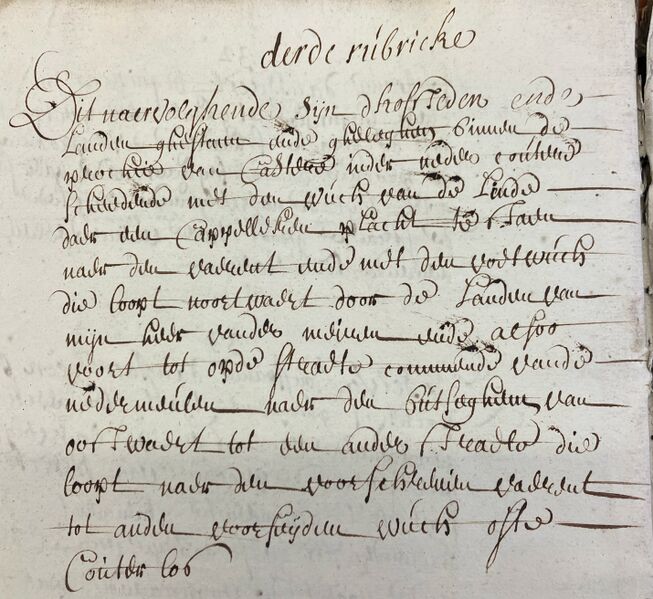 derde rúbricke
Dit naervolghende sijn dhofsteden ende
Landen ghestaen ende gheleghen binnen de
prochie van Castere inder neder coútere
scheedende met den wúch van de Linde
daer een Cappelleken placht te staen
naer den daerent ende met den voetwúch
die loopt noortwaert door de Landen van
mijn heer vander meiren ende alsoo
voort tot opde straete commende vande
nedermeúlen naer den bútseghem van
oostwaert tot een ander straete die
loopt naer den voorschreven daerent
tot anden voorseyden wúch ofte
Coúter los